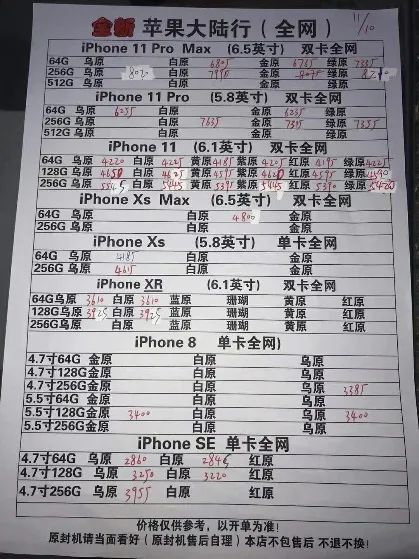 全新 苹果大陆行（全网） 11/10
iPhone 11 Pro Max （6.5英寸） 双卡全网
64G 乌原 白原 6805 金原 6735 绿原 7335
256G 乌原 8020 白原 7950 金原 8075 绿原
512G 乌原 白原 金原 绿原
iPhone 11 Pro （5.8英寸） 双卡全网
64G 乌原 6235 白原 金原 6235 绿原
256G 乌原 白原 7635 金原 7305 绿原 7355
512G 乌原 白原 金原 绿原
iPhone 11 （6.1英寸） 双卡全网
64G 乌原 4220 白原 4225 黄原 4185 紫原 4205 红原 4195 绿原 4225
128G 乌原 4650 白原 4625 黄原 4595 紫原 4620 红原 4595 绿原 4590
256G 乌原 5545 白原 5445 黄原 5395 紫原 5445 红原 5390 绿原 5420
iPhone Xs Max （6.5英寸） 双卡全网
64G 乌原 白原 4800 金原
256G 乌原 白原 金原
iPhone Xs （5.8英寸） 单卡全网
64G 乌原 4185 白原 金原
256G 乌原 4615 白原 金原
iPhone XR （6.1英寸） 双卡全网
64G乌原 3610 白原 3610 蓝原 珊瑚 黄原 红原
128G乌原 3925 白原 3925 蓝原 珊瑚 黄原 红原
256G乌原 白原 蓝原 珊瑚 黄原 红原
iPhone 8 单卡全网）
4.7寸64G 金原 白原 乌原
4.7寸128G 金原 白原 乌原
4.7寸256G 金原 白原 乌原 3385
5.5寸64G 金原 白原 乌原
5.5寸128G 金原 3400 白原 乌原 3400
5.5寸256G 金原 白原 乌原
iPhone SE 单卡全网
4.7寸64G 乌原 2860 白原 2845 红原
4.7寸128G 乌原 3250 白原 3220 红原
4.7寸256G 乌原 3955 白原 红原
价格仅供参考，以开单为准！
原封机请当面看好（原封机售后自理）本店不包售后 不退不换！